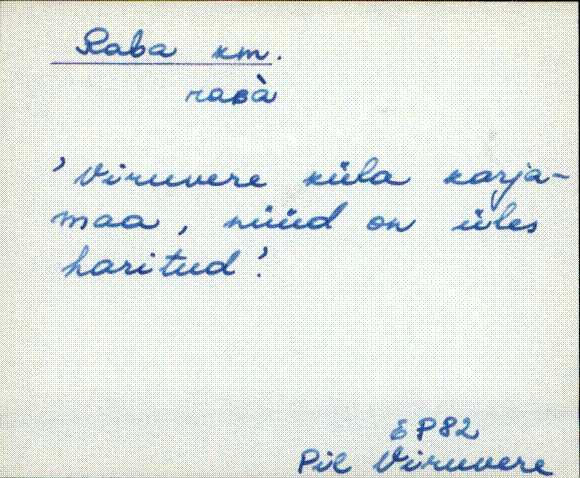 Raba km.
rabà
'Viruvere küla karja-
maa, nüüd on üles
haritud'.
EP82
Pil Viruvere